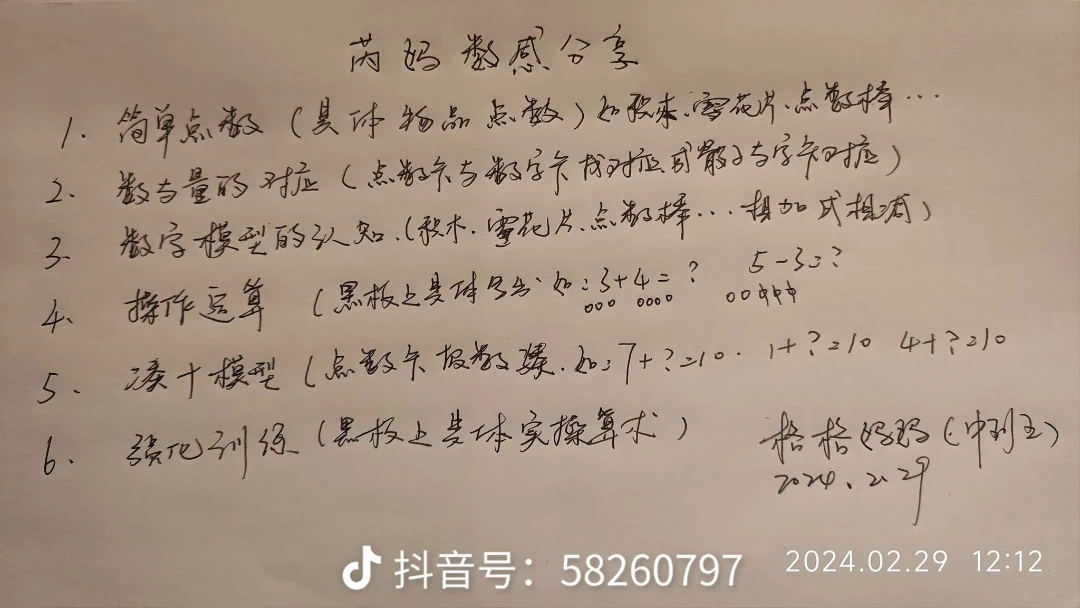 芮妈数感分享
1. 简单点数（具体物品点数）如积木、雪花片、点数棒…
2. 数与量的对应（点数卡与数字卡找对应或骰子与字卡对应）
3. 数字模型的认知.（积木.雪花片、点数棒…相加或相减）
4. 操作运算（黑板上具体 如：3+4=？ 5-3=？
5. 凑十模型（点数卡 数 .如：7+？=10. 1+？=10 4+？=10
6. 强化训练（黑板上具体实操算术）
格格妈妈（中班）
2024.2.29
抖音号：58260797
2024.02.29 12:12